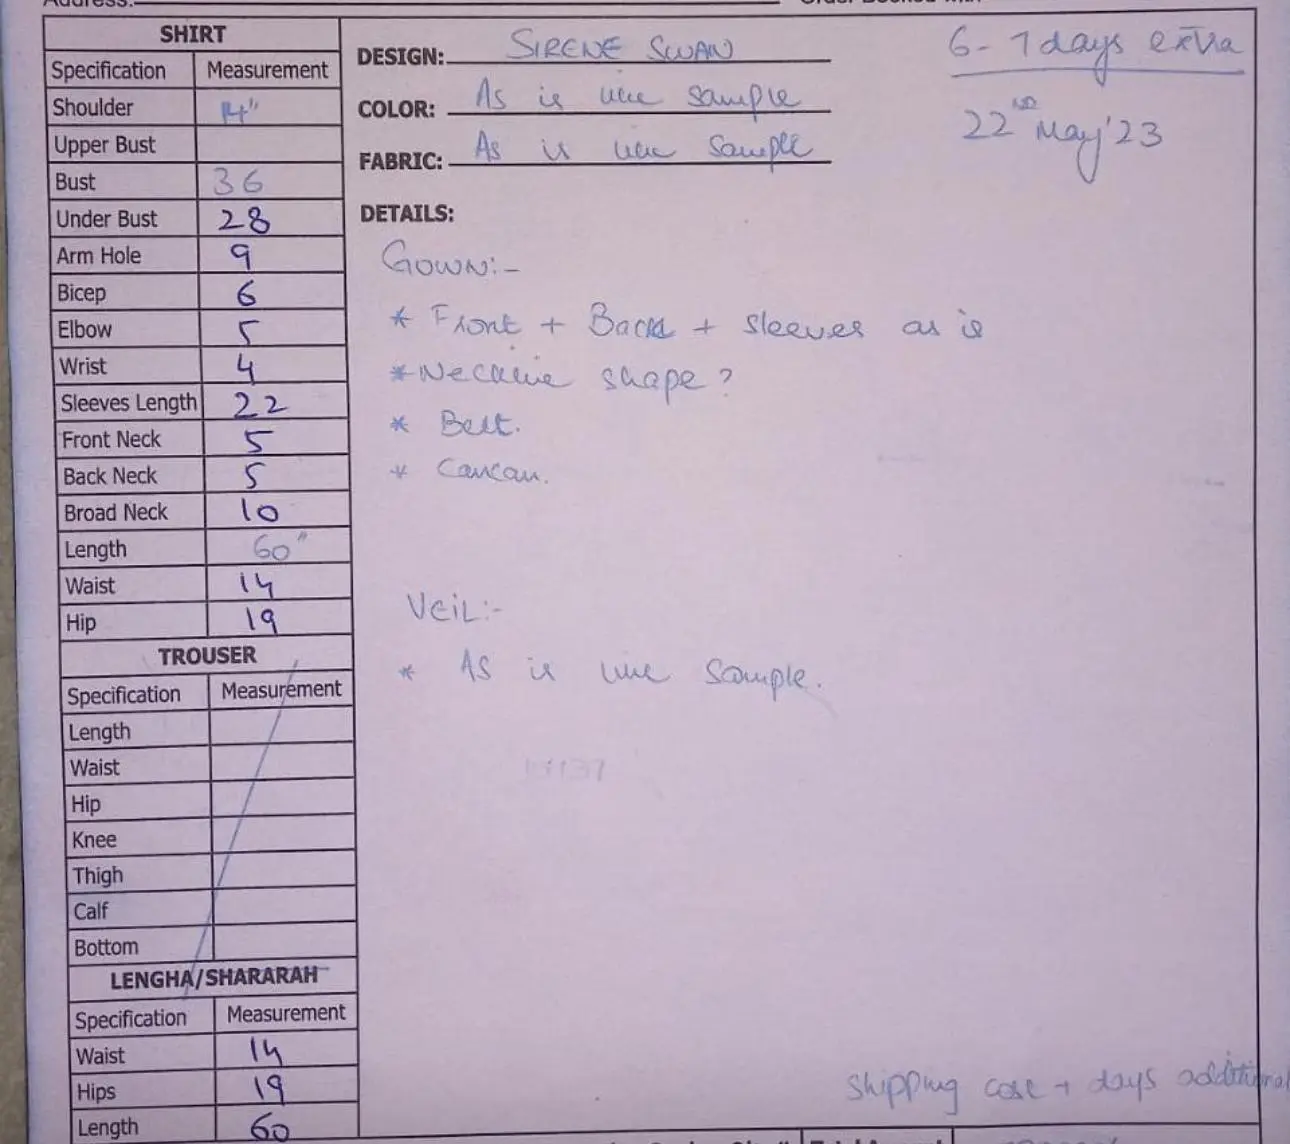 Address:
SHIRT
Specification Measurement
Shoulder 14"
Upper Bust
Bust 36
Under Bust 28
Arm Hole 9
Bicep 6
Elbow 5
Wrist 4
Sleeves Length 22
Front Neck 5
Back Neck 5
Broad Neck 10
Length 60"
Waist 14
Hip 19
TROUSER
Specification Measurement
Length
Waist
Hip
Knee
Thigh
Calf
Bottom
LENGHA/SHARARAH
Specification Measurement
Waist 14
Hips 19
Length 60
DESIGN: SIRENE SWAN
COLOR: As is like sample
FABRIC: As is like sample
6-7 days extra
22ND May'23
DETAILS:
Gown:-
* Front + Back + sleeves as is
* Neckline shape?
* Belt.
* Cancan.
Veil:-
* As is like sample.
shipping cost + days additional